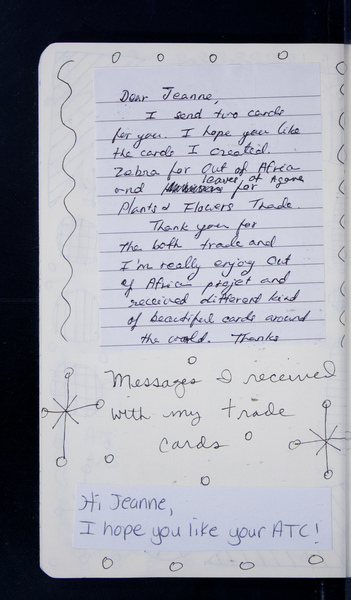 Dear Jeanne,
I send two cards
for you. I hope you like
the cards I created.
Zebra for Out of Africa
and leaves of Agave for
Plants & Flowers Trade.
Thank you for
the both trade and
I'm really enjoy Out
of Africa projet and
received different kind
of beautiful cards around
the world. Thanks
Messages I received
with my trade
cards
Hi Jeanne,
I hope you like your ATC!